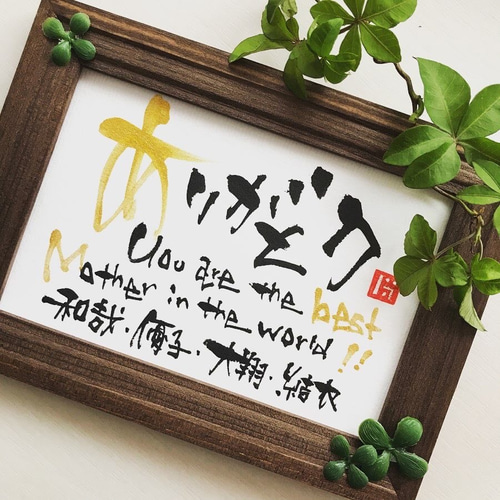 ありがとう
You are the best
Mother in the world!!
和誠・優子・大翔・結衣